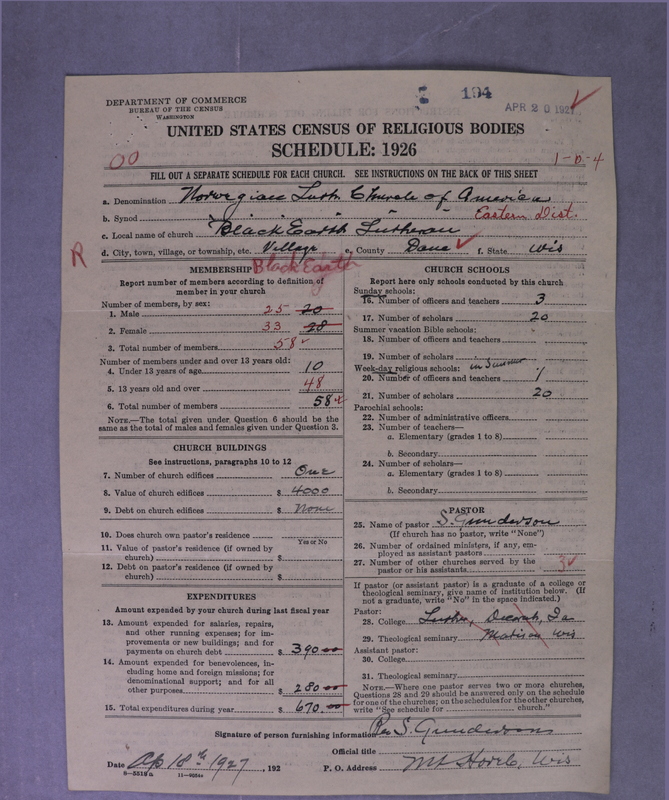 DEPARTMENT OF COMMERCE
BUREAU OF THE CENSUS
WASHINGTON
194
APR 20 1927
UNITED STATES CENSUS OF RELIGIOUS BODIES
SCHEDULE: 1926
00
1-b-4
FILL OUT A SEPARATE SCHEDULE FOR EACH CHURCH. SEE INSTRUCTIONS ON THE BACK OF THIS SHEET
a. Denomination Norwegian Luth Church of America
b. Synod " " " " Eastern Dist.
c. Local name of church Black Earth Lutheran
R d. City, town, village, or township, etc. Village e. County Dane f. State Wis
Black Earth
MEMBERSHIP
Report number of members according to definition of
member in your church
Number of members, by sex:
1. Male 25 20
2. Female 33 28
3. Total number of members 58
Number of members under and over 13 years old:
4. Under 13 years of age 10
5. 13 years old and over 48
6. Total number of members 58
NOTE.—The total given under Question 6 should be the
same as the total of males and females given under Question 3.
CHURCH BUILDINGS
See instructions, paragraphs 10 to 12
7. Number of church edifices One
8. Value of church edifices $ 4000
9. Debt on church edifices $ None
10. Does church own pastor's residence
Yes or No
11. Value of pastor's residence (if owned by
church) $
12. Debt on pastor's residence (if owned by
church) $
EXPENDITURES
Amount expended by your church during last fiscal year
13. Amount expended for salaries, repairs,
and other running expenses; for im-
provements or new buildings; and for
payments on church debt $ 390 00
14. Amount expended for benevolences, in-
cluding home and foreign missions; for
denominational support; and for all
other purposes $ 280 00
15. Total expenditures during year $ 670 00
CHURCH SCHOOLS
Report here only schools conducted by this church
Sunday schools:
16. Number of officers and teachers 3
17. Number of scholars 20
Summer vacation Bible schools:
18. Number of officers and teachers
19. Number of scholars
Week-day religious schools: in Summer
20. Number of officers and teachers 1
21. Number of scholars 20
Parochial schools:
22. Number of administrative officers
23. Number of teachers—
a. Elementary (grades 1 to 8)
b. Secondary
24. Number of scholars—
a. Elementary (grades 1 to 8)
b. Secondary
PASTOR
25. Name of pastor S. Gunderson
(If church has no pastor, write "None")
26. Number of ordained ministers, if any, em-
ployed as assistant pastors
27. Number of other churches served by the
pastor or his assistants 3
If pastor (or assistant pastor) is a graduate of a college or
theological seminary, give name of institution below. (If
not a graduate, write "No" in the space indicated.)
Pastor:
28. College Luther, Decorah, Ia
29. Theological seminary Madison Wis
Assistant pastor:
30. College
31. Theological seminary
NOTE.—Where one pastor serves two or more churches,
Questions 28 and 29 should be answered only on the schedule
for one of the churches; on the schedules for the other churches,
write "See schedule for church."
Signature of person furnishing information Rev S. Gunderson
Official title
Date Ap 18th 1927, 192 P. O. Address Mt Horeb, Wis
8—5519a 11—9554